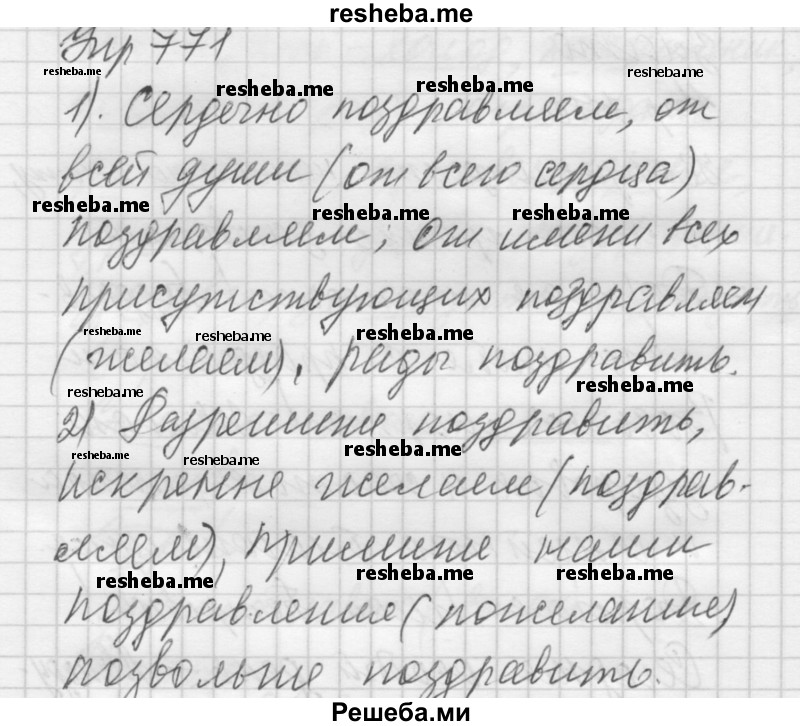 resheba.me
Упр 771
resheba.me resheba.me resheba.me resheba.me
1). Сердечно поздравляем, от
всей души (от всего сердца)
resheba.me resheba.me resheba.me
поздравляем; от имени всех
присутствующих поздравляем
resheba.me resheba.me resheba.me
(желаем), рады поздравить.
resheba.me resheba.me
2) Разрешите поздравить,
resheba.me resheba.me resheba.me
искренне желаем (поздрав-
ляем), примите наши
resheba.me resheba.me resheba.me
поздравления (пожелание)
позвольте поздравить.
Решеба.ми